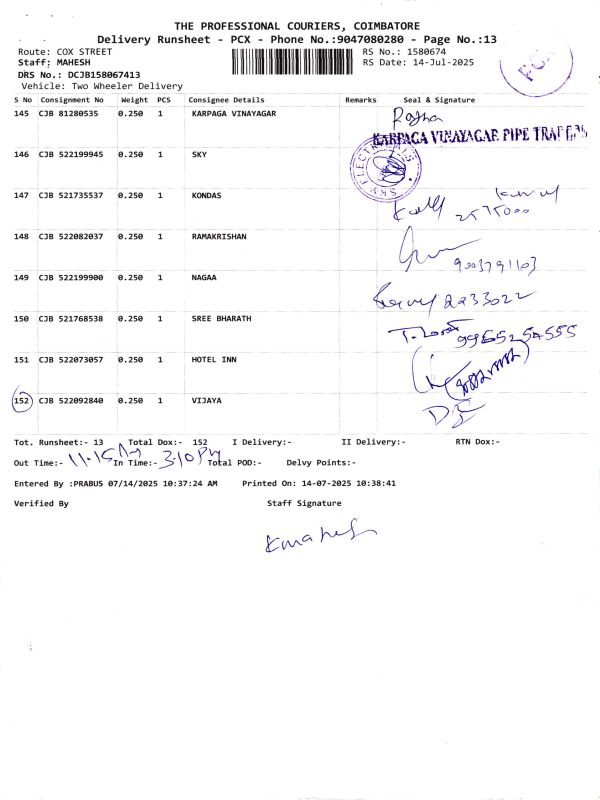 THE PROFESSIONAL COURIERS, COIMBATORE
Delivery Runsheet - PCX - Phone No.:9047080280 - Page No.:13
Route: COX STREET RS No.: 1580674
Staff: MAHESH RS Date: 14-Jul-2025
DRS No.: DCJB158067413
Vehicle: Two Wheeler Delivery
S No Consignment No Weight PCS Consignee Details Remarks Seal & Signature
145 CJB 81280535 0.250 1 KARPAGA VINAYAGAR
KARPAGA VINAYAGAR PIPE TRADERS
146 CJB 522199945 0.250 1 SKY
SKY ELECTRICALS
147 CJB 521735537 0.250 1 KONDAS
2575000
148 CJB 522082037 0.250 1 RAMAKRISHAN
9003791103
149 CJB 522199900 0.250 1 NAGAA
2233022
150 CJB 521768538 0.250 1 SREE BHARATH
9965254555
151 CJB 522073057 0.250 1 HOTEL INN
152 CJB 522092840 0.250 1 VIJAYA
Tot. Runsheet:- 13 Total Dox:- 152 I Delivery:- II Delivery:- RTN Dox:-
Out Time:- 11.15 AM In Time:- 3.10 PM Total POD:- Delvy Points:-
Entered By :PRABUS 07/14/2025 10:37:24 AM Printed On: 14-07-2025 10:38:41
Verified By Staff Signature
K mahesh